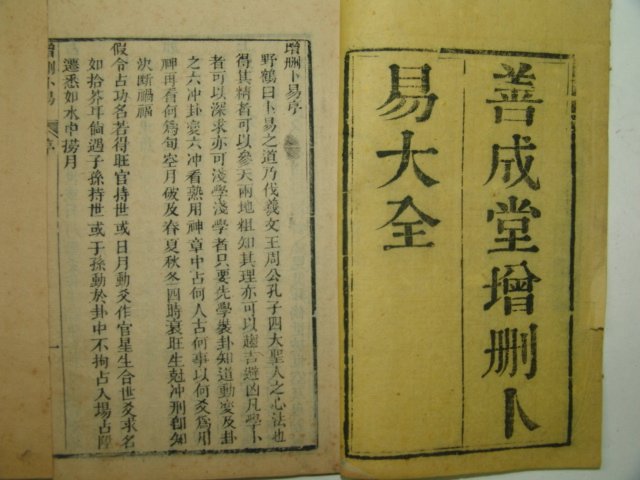 善成堂增删卜
易大全
增删卜易序
野鶴曰卜易之道乃伏羲文王周公孔子四大聖人之心法也
得其精者可以參天兩地粗知其理亦可以趨吉避凶凡學卜
者可以深求亦可淺學淺學者只要先學裝卦知道動變及卦
之六冲卦變六冲看熟用神章中占何人占何事以何爻為用
神再看何為旬空月破及春夏秋冬四時衰旺生尅冲刑卽知
决斷禍福
假令占功名若得旺官持世或日月動爻作官星生合世爻求名
如拾芥耳倘遇子孫持世或子孫動於卦中不拘占入場占陞
遷悉如水中撈月
增删卜易
序
一